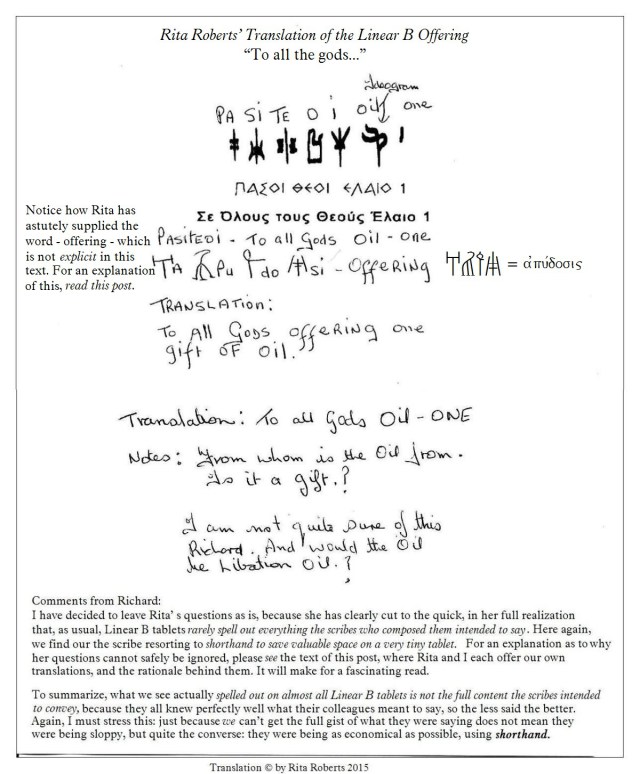 Rita Roberts' Translation of the Linear B Offering
“To all the gods...”
Ideogram
PA Si TE O i oil one
ΠΑΣΟΙ ΘΕΟΙ ΕΛΑΙΟ 1
Σε Όλους τους Θεούς Έλαιο 1
Notice how Rita has
astutely supplied the
word - offering - which
is not explicit in this
text. For an explanation
of this, read this post.
PASiTEOi - To all Gods Oil - one
A Pu do si - Offering = ἀπύδοσις
TRANSLATION:
To All Gods offering one
gift of oil.
Translation: To all Gods Oil - ONE
Notes: From whom is the Oil from.
Is it a gift.?
I am not quite sure of this
Richard. And would the Oil
be Libation Oil.?
Comments from Richard:
I have decided to leave Rita' s questions as is, because she has clearly cut to the quick, in her full realization
that, as usual, Linear B tablets rarely spell out everything the scribes who composed them intended to say. Here again,
we find our the scribe resorting to shorthand to save valuable space on a very tiny tablet. For an explanation as to why
her questions cannot safely be ignored, please see the text of this post, where Rita and I each offer our own
translations, and the rationale behind them. It will make for a fascinating read.
To summarize, what we see actually spelled out on almost all Linear B tablets is not the full content the scribes intended
to convey, because they all knew perfectly well what their colleagues meant to say, so the less said the better.
Again, I must stress this: just because we can't get the full gist of what they were saying does not mean they
were being sloppy, but quite the converse: they were being as economical as possible, using shorthand.
Translation © by Rita Roberts 2015